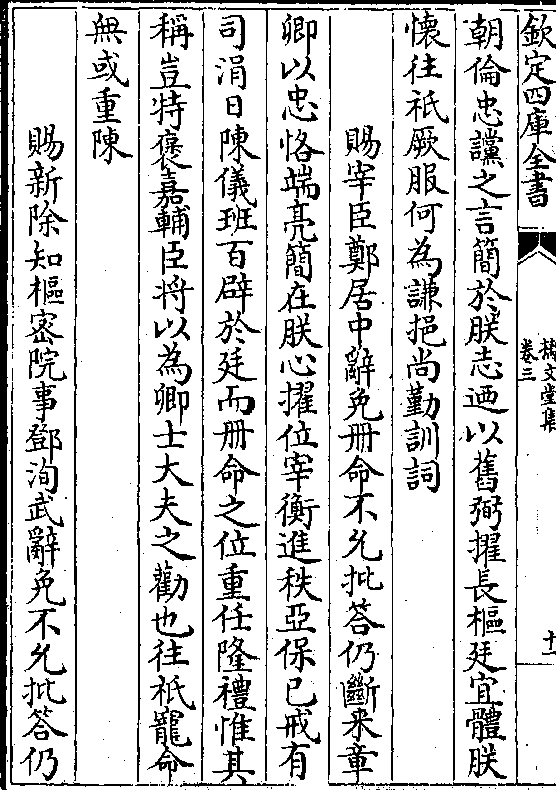 欽定四庫全書
摛文堂集
卷三
十一
朝倫忠讜之言簡於朕志廼以舊弼擢長樞廷宜體朕
懷往祇厥服何為謙挹尚勤訓詞
賜宰臣鄭居中辭免冊命不允批答仍斷来章
卿以忠恪端亮簡在朕心擢位宰衡進秩亞保已戒有
司涓日陳儀班百辟於廷而冊命之位重任隆禮惟其
稱豈特褒嘉輔臣將以為卿士大夫之勸也往祇寵命
無或重陳
賜新除知樞密院事鄧洵武辭免不允批答仍